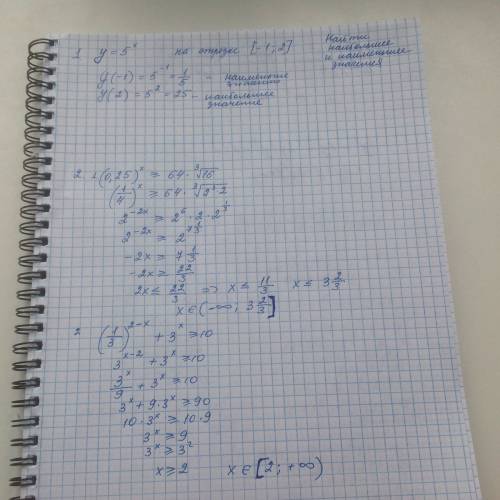 1. y = 5^x на отрезке [-1; 2] Найти наибольшее и наименьшее значения
y(-1) = 5^-1 = 1/5 - наименьшее значение
y(2) = 5^2 = 25 - наибольшее значение
2. 1 (0,25)^x ≥ 64 · ∛16
(1/4)^x ≥ 64 · ∛(2^3 · 2)
2^-2x ≥ 2^6 · 2 · 2^(1/3)
2^-2x ≥ 2^(7 1/3)
-2x ≥ 7 1/3
-2x ≥ 22/3
2x ≤ 22/3 ⇒ x ≤ 11/3 x ≤ 3 2/3
x ∈ (-∞; 3 2/3]
2 (1/3)^(2-x) + 3^x ≥ 10
3^(x-2) + 3^x ≥ 10
3^x/9 + 3^x ≥ 10
3^x + 9·3^x ≥ 90
10·3^x ≥ 10·9
3^x ≥ 9
3^x ≥ 3^2
x ≥ 2 x ∈ [2; +∞)